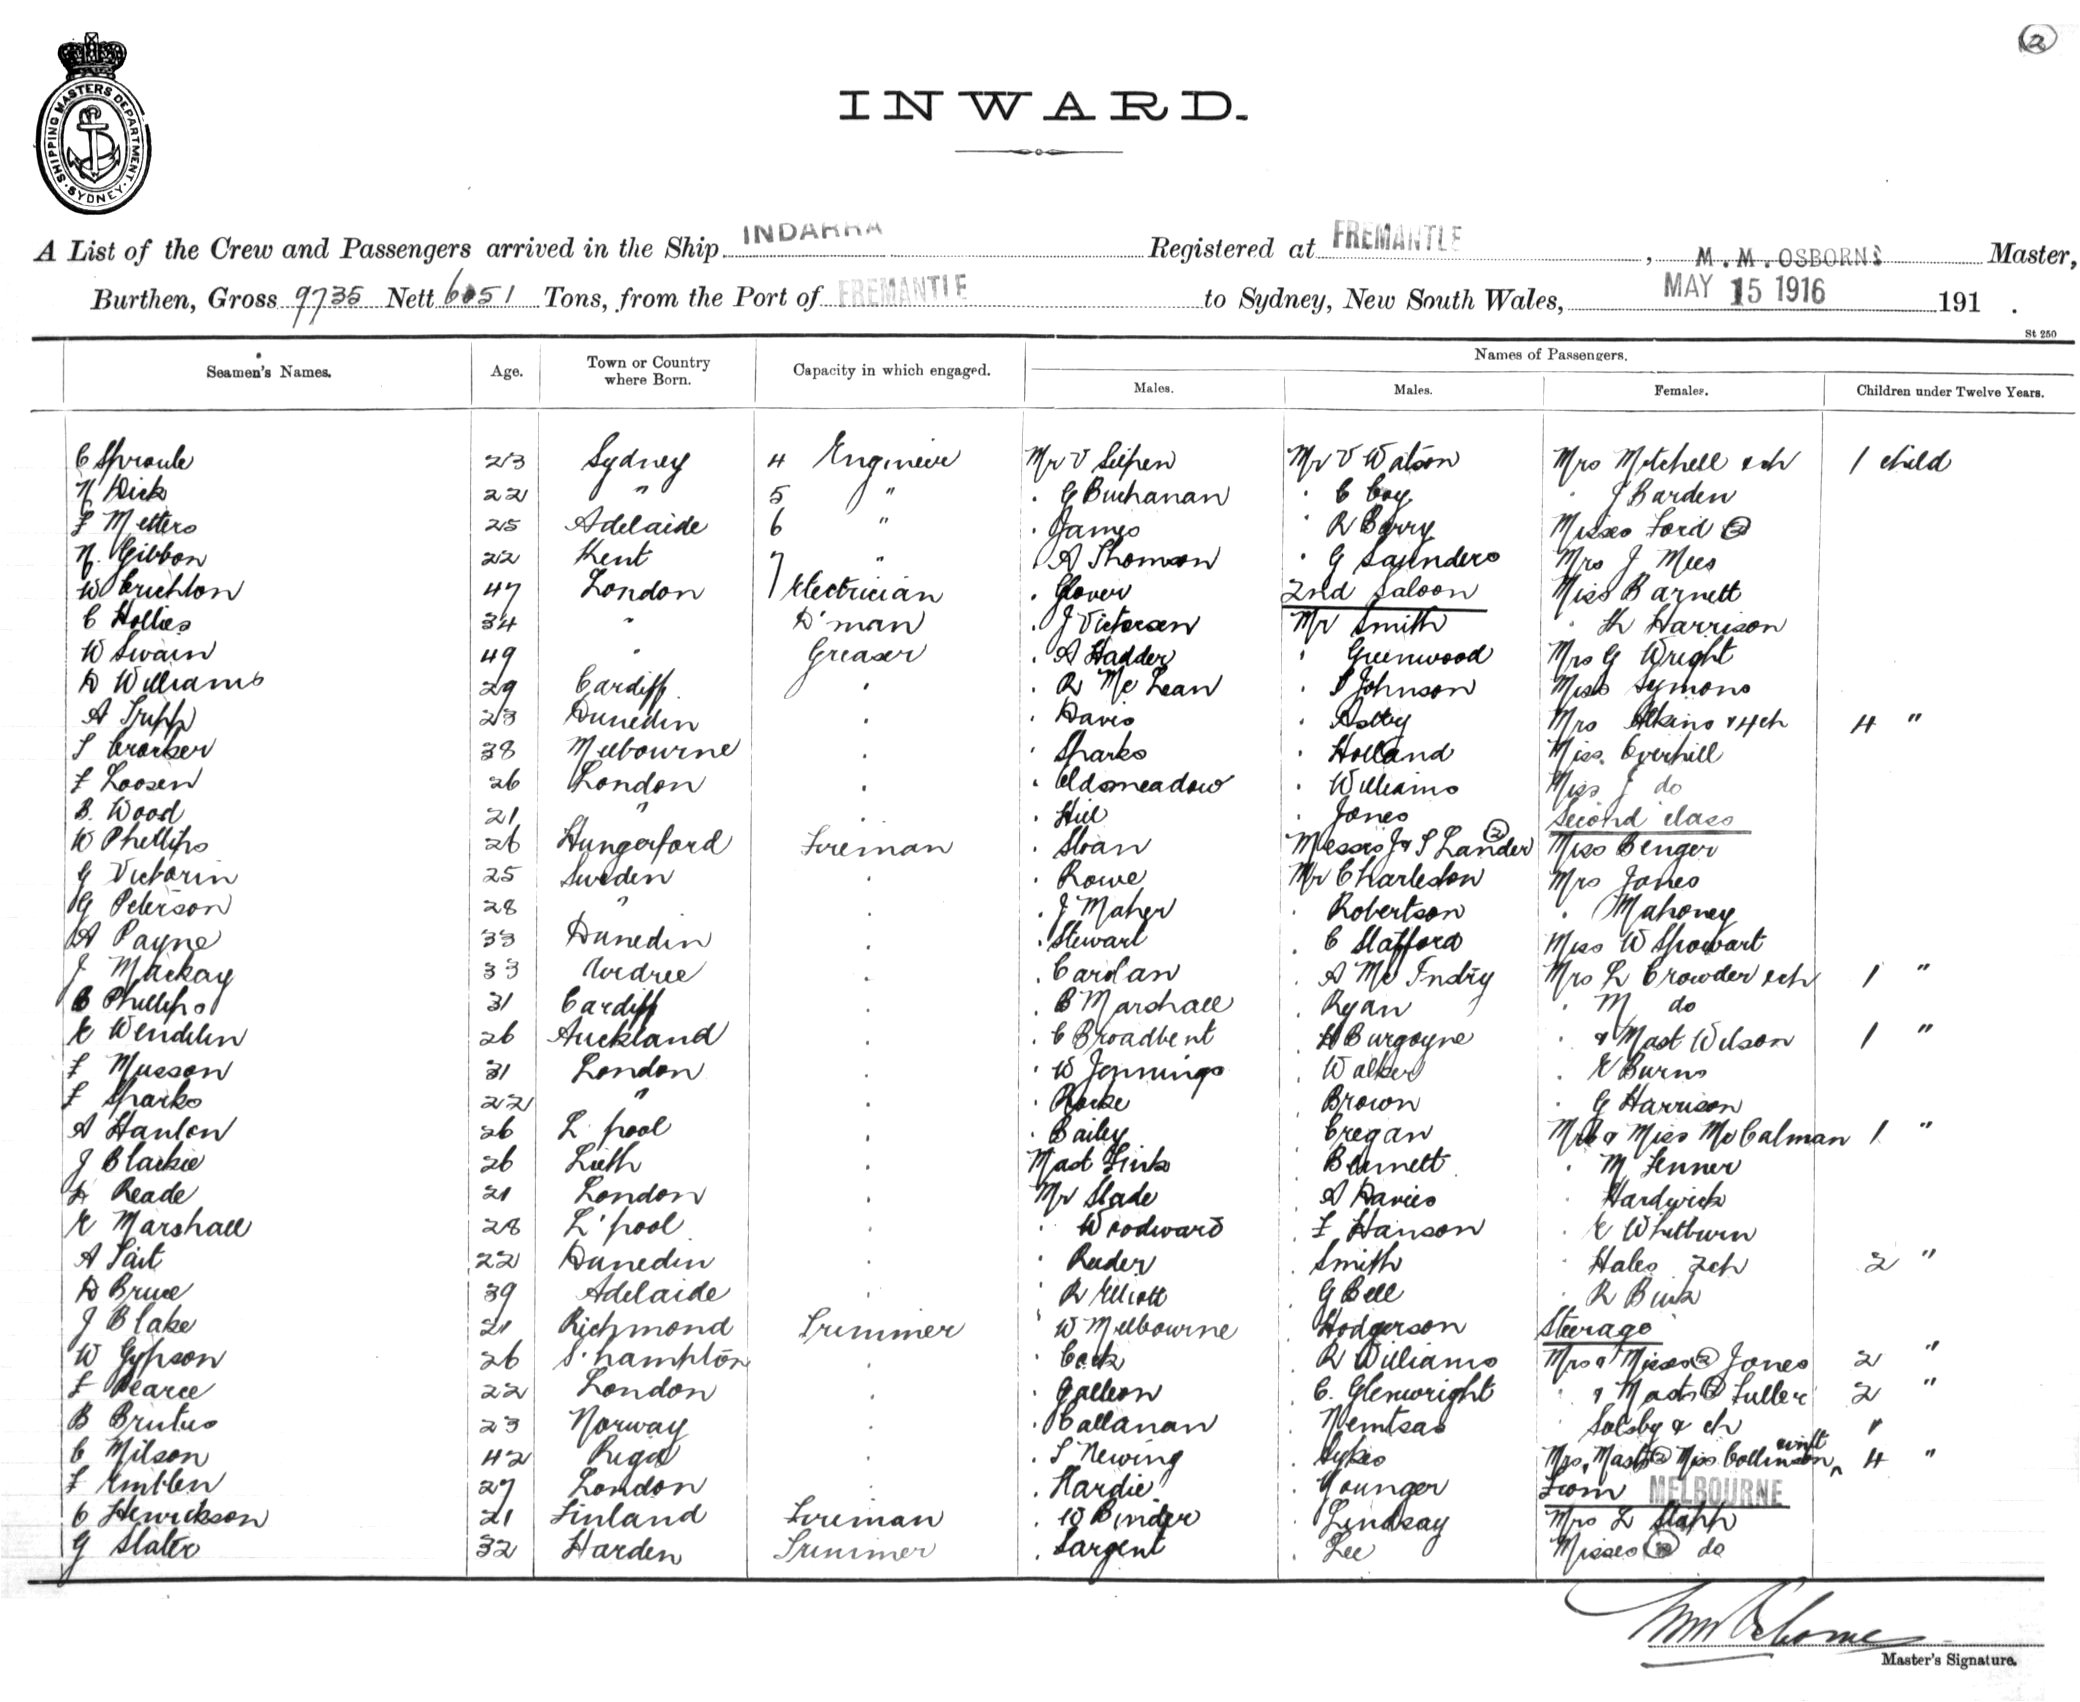 2
SHIPPING MASTERS DEPARTMENT. SYDNEY.
INWARD.
A List of the Crew and Passengers arrived in the Ship INDARRA Registered at FREMANTLE, M.M. OSBORNS Master,
Burthen, Gross 9735 Nett 6051 Tons, from the Port of FREMANTLE to Sydney, New South Wales, MAY 15 1916 191 .
St 250
Seamen's Names. Age. Town or Country where Born. Capacity in which engaged. Names of Passengers.
Males. Males. Females. Children under Twelve Years.
C Sproule 23 Sydney 4 Engineer Mr V Siepen Mr V Watson Mrs Mitchell & ch 1 child
N Dick 22 " 5 " . G Buchanan . C Coy . J Barden
F Metters 25 Adelaide 6 " . James . R Barry Misses Ford 2
N. Gibbon 22 Kent 7 " . A Thomson . G Saunders Mrs J Mees
W Crichton 47 London 1 Electrician . Glover 2nd Saloon Miss Barnett
C Hollies 34 " D'man . J Victorsen Mr Smith . H Harrison
W Swain 49 " Greaser . A Hadder . Greenwood Mrs G Wright
D Williams 29 Cardiff . . R McLean . S Johnson Miss Symons
A Tripp 23 Dunedin . . Davis . Astley Mrs Atkins & 4ch 4 "
S Crocker 38 Melbourne . . Sparks . Holland Miss Overhill
F Loosen 26 London . . Oldsmeadow . Williams Miss J do
B. Wood 21 " . . Hill . Jones Second class
W Phillips 26 Hungerford Fireman . Sloan Messrs J & S Lander 2 Miss Benger
G Victorin 25 Sweden . . Rowe Mr Charleston Mrs Jones
G Peterson 28 " . . J Maher . Robertson . Mahoney
A Payne 33 Dunedin . . Stewart . C Stafford Miss W Spowart
J Mackay 33 Airdree . . Carolan . A McIndry Mrs L Crowder & ch 1 "
C Phillips 31 Cardiff . . B Marshall . Ryan . M do
E Wendelin 26 Auckland . . C Broadbent . H Burgoyne . & Mast Wilson 1 "
F Musson 31 London . . W Jennings . Walker . E Burns
F Sparks 22 " . . Rorke . Brown . G Harrison
A Hanlon 26 L'pool . . Bailey . Cregan Mrs & Miss McCalman 1 "
J Blackie 26 Lieth . Mast Fink . Bennett . M Fenner
H Reade 21 London . Mr Slade . A Davies . Hardwick
E Marshall 28 L'pool . . Woodward . F Hanson . E Whitburn
A Tait 22 Dunedin . . Reeder . Smith . Hales 2ch 2 "
D Bruce 39 Adelaide . . R Elliott . G Bell . R Buik
J Blake 21 Richmond Trimmer . W Melbourne . Hodgerson Steerage
W Gypson 26 S'hampton . . Cock . R Williams Mrs & Misses 2 Jones 2 "
F Pearce 22 London . . Galleon . C. Glenwright . & Masts 2 Fuller 2 "
B Brutus 23 Norway . . Callanan . Nemtsas . Solsby & ch 1
C Milson 42 Riga . . S Newing . Sykes Mrs, Masts 2 Miss Collinson, & inft 4 "
F Emblen 27 London . . Hardie . Younger From MELBOURNE
C Henrickson 21 Finland Fireman . W Binder . Lindsay Mrs L Stapp
G Slater 32 Harden Trimmer . Sargent . Lee Misses 2 do
Master's Signature.